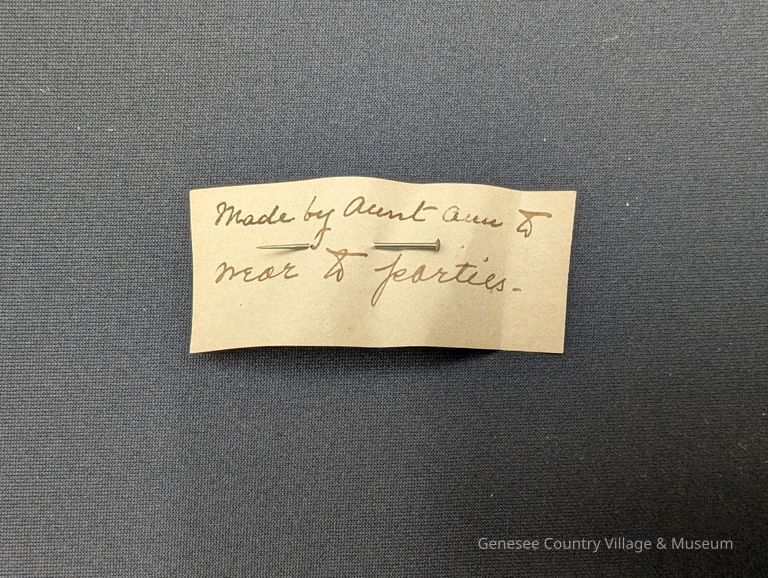 Made by Aunt Ann to
wear to parties.
Genesee Country Village & Museum